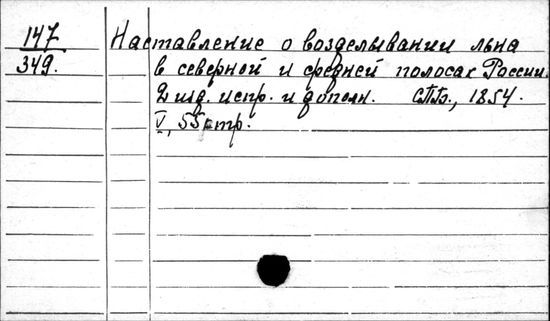 147
349.
Наставление о возделывании льна
в северной и средней полосах России.
2 изд. испр. и дополн. СПб., 1854.
V, 55 стр.